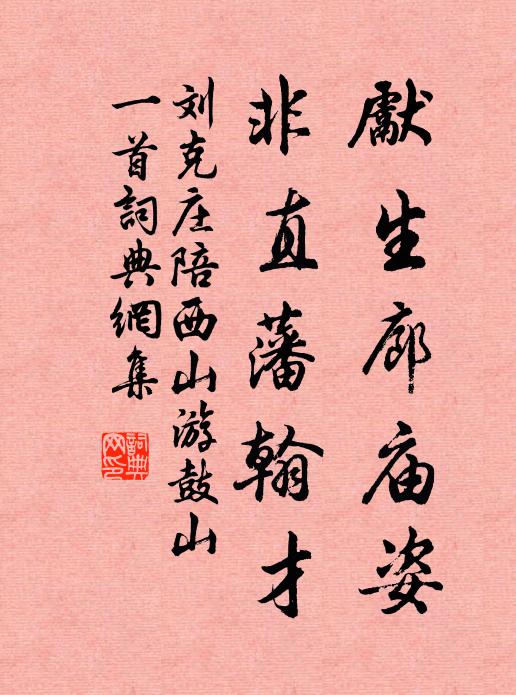 獻生廊庙姿
非直藩翰才
刘克庄陪西山游鼓山
一首詞典網集
詞典网印